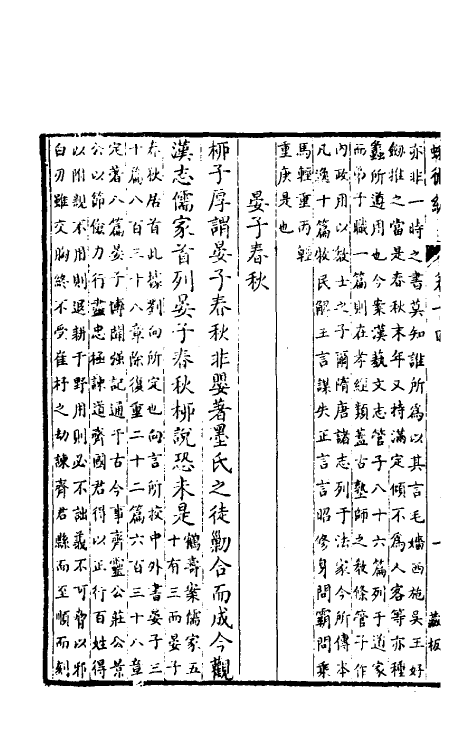 亦非一時之書莫知誰所為以其言毛嬙西施吳王好
劒推之當是春秋末年又持滿定傾不為人客等亦種
蠡所遵用也今案漢藝文志管子八十六篇列于道家
而弟子職一篇則在孝經類蓋古塾師之教條管子作
內政用以教士之子爾隋唐諸志列于法家今所傳本
凡漢十篇牧民解王言謀失正言言昭修身問霸問乘
馬輕重丙輕
重庚是也
晏子春秋
柳子厚謂晏子春秋非嬰著墨氏之徒勦合而成今觀
漢志儒家首列晏子春秋柳說恐未是
鶴壽案儒家五
十有三而晏子
春秋居首此據劉向所定也向言所挍中外書晏子三
十篇八百三十八章除復重二十二篇六百三十八章
定著八篇晏子博聞强記通于古今事齊靈公莊公景
公以節儉力行盡忠極諫道齊國君得以正行百姓得
以附親不用則退耕于野用則必不詘義不可脅以邪
白刃雖交胸終不受崔杼之劫諫齊君縣而至順而刻
卷十四
一
藏板